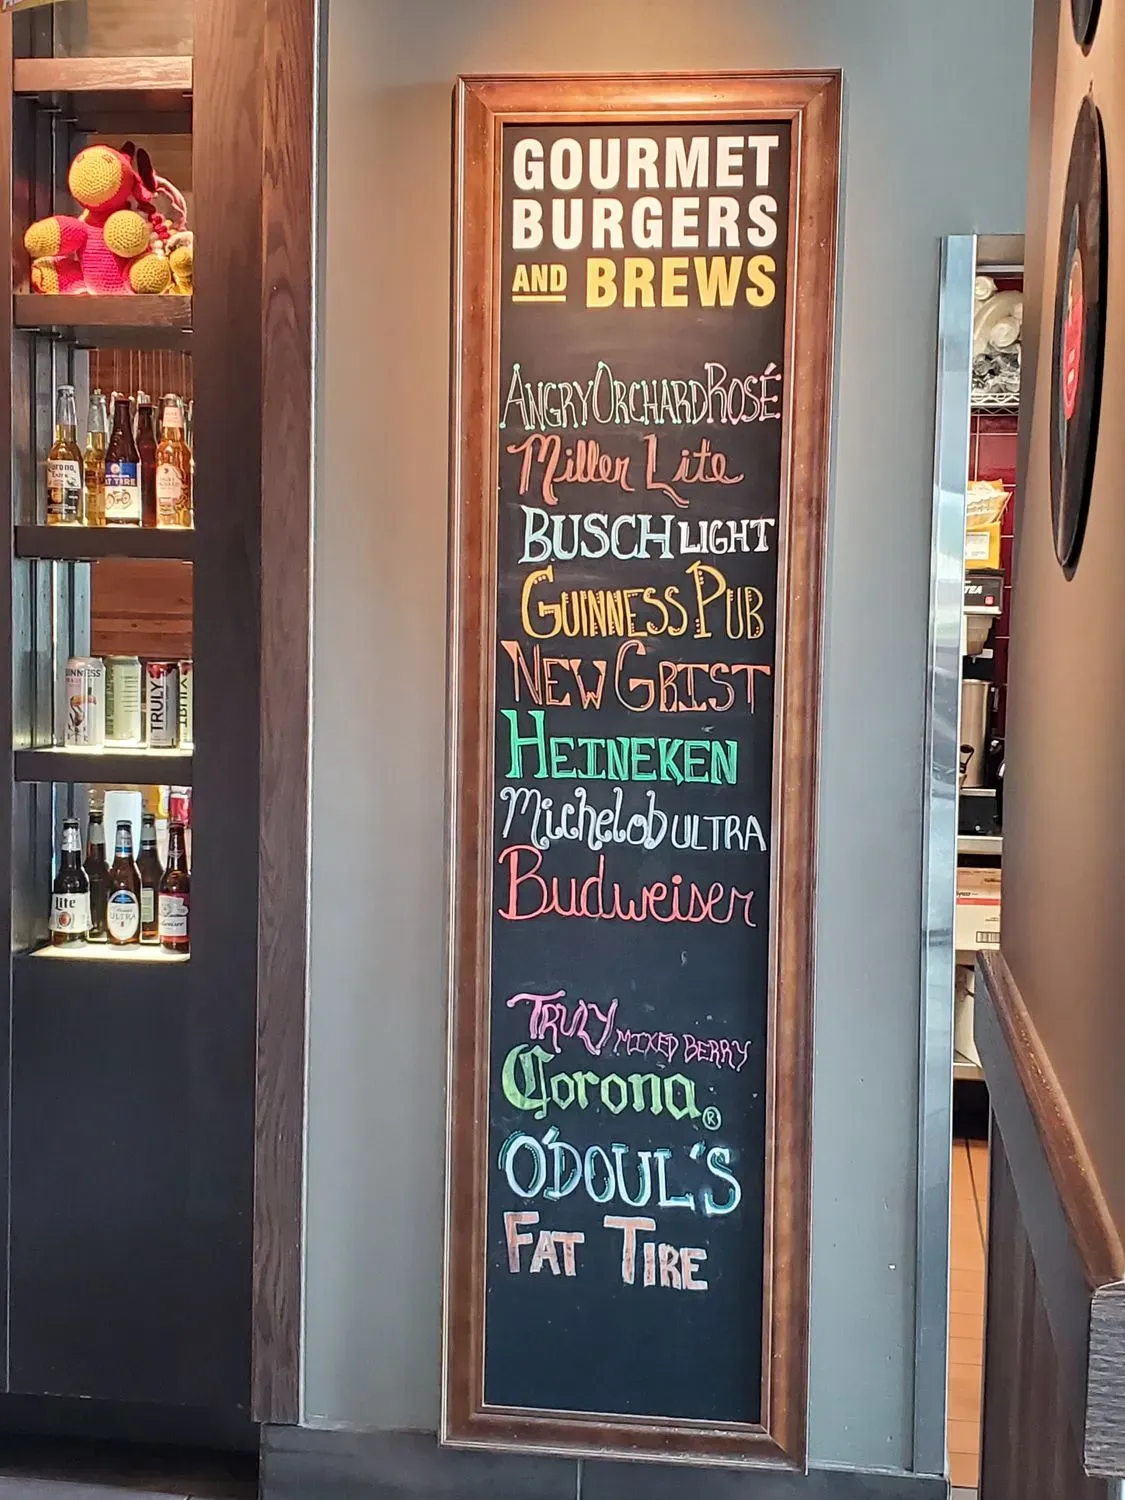 GOURMET
BURGERS
AND BREWS
ANGRY ORCHARD ROSÉ
Miller Lite
BUSCH LIGHT
GUINNESS PUB
NEW GRIST
HEINEKEN
Michelob ULTRA
Budweiser
TRULY MIXED BERRY
Corona®
O'DOUL'S
FAT TIRE
Corona
AT TIRE
UINNESS
TRULY
TRULY
Lite
ULTRA
TEA